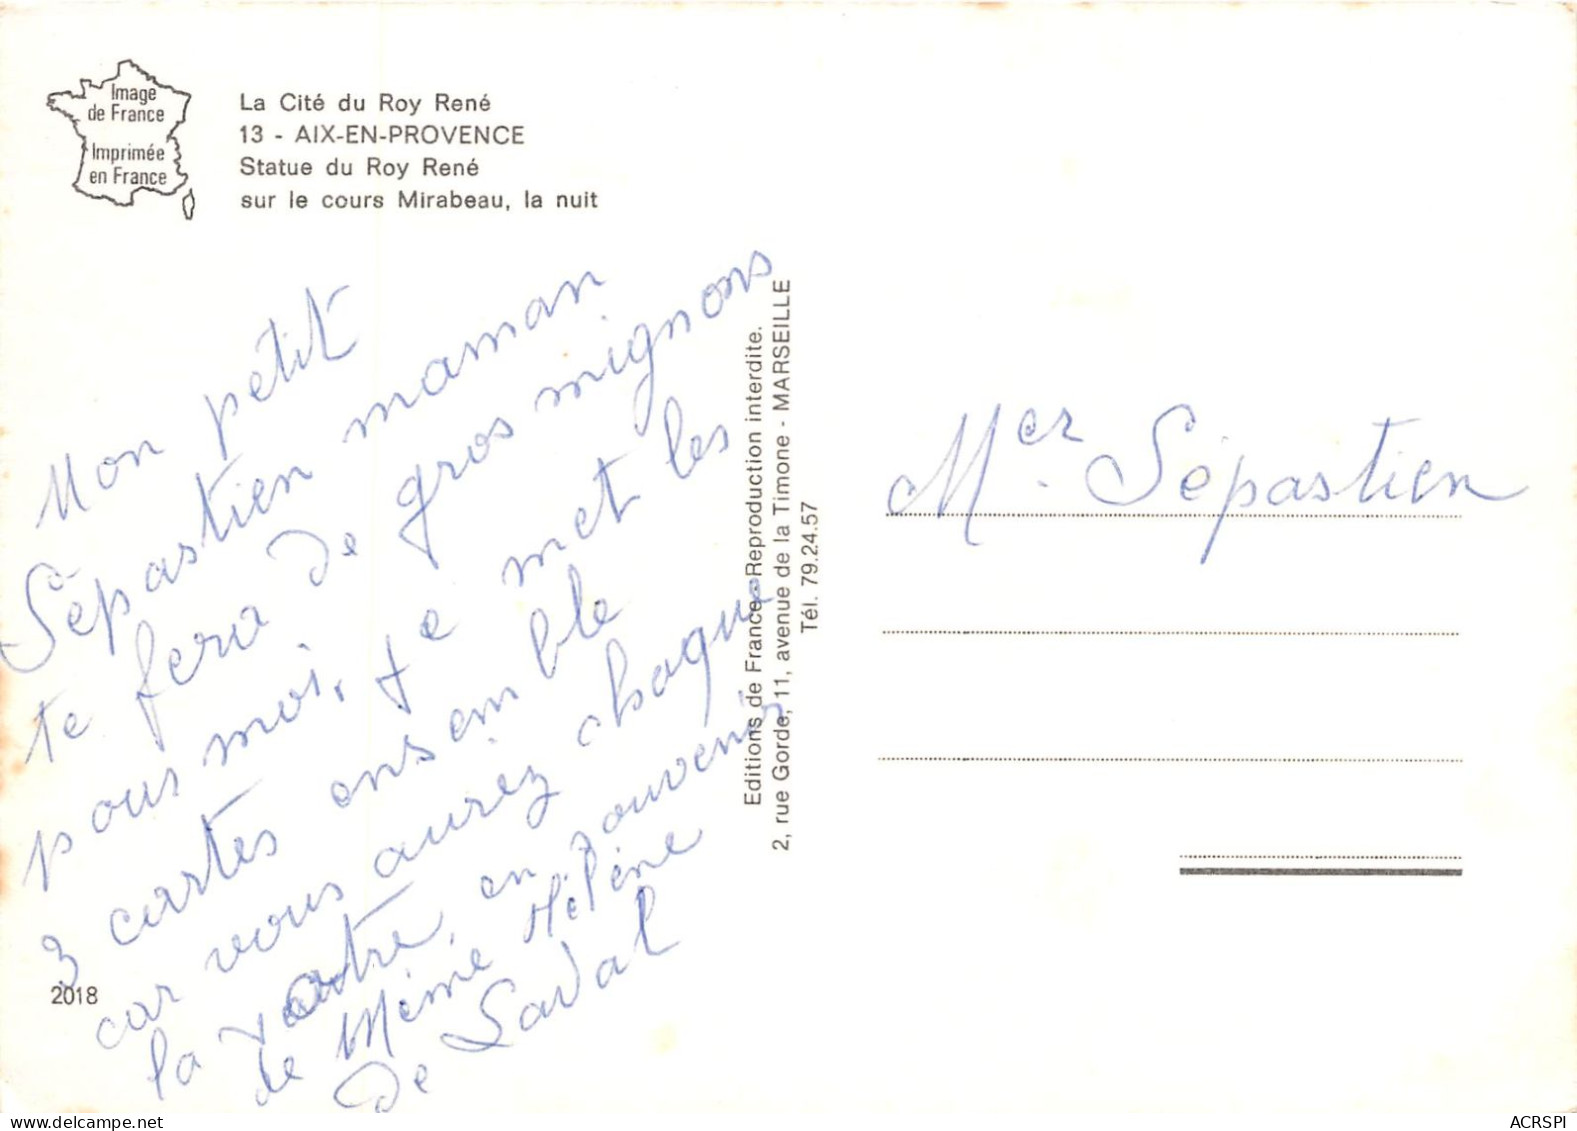 Image
de France
Imprimée
en France
La Cité du Roy René
13 - AIX-EN-PROVENCE
Statue du Roy René
sur le cours Mirabeau, la nuit
Mon petit
Sépastien maman
te fera de gros mignons
pour moi, te met les
3 cartes ensemble
car vous aurez chaque
la votre, en souvenir
de Mémé Hélène
de Laval
2018
Editions de France - Reproduction interdite.
2, rue Gorde, 11, avenue de la Timone - MARSEILLE
Tél. 79.24.57
Mer. Sépastien
ACRSPI